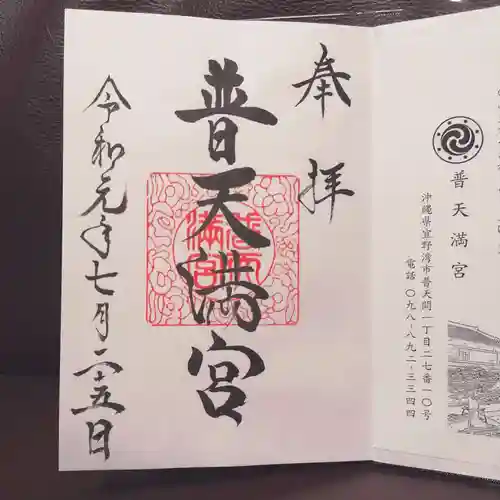 奉拝
普天満宮
令和元年七月二十五日
普天満宮
普天満宮
沖縄県宜野湾市普天間一丁目二七番一〇号
電話 〇九八-八九二-三三四四